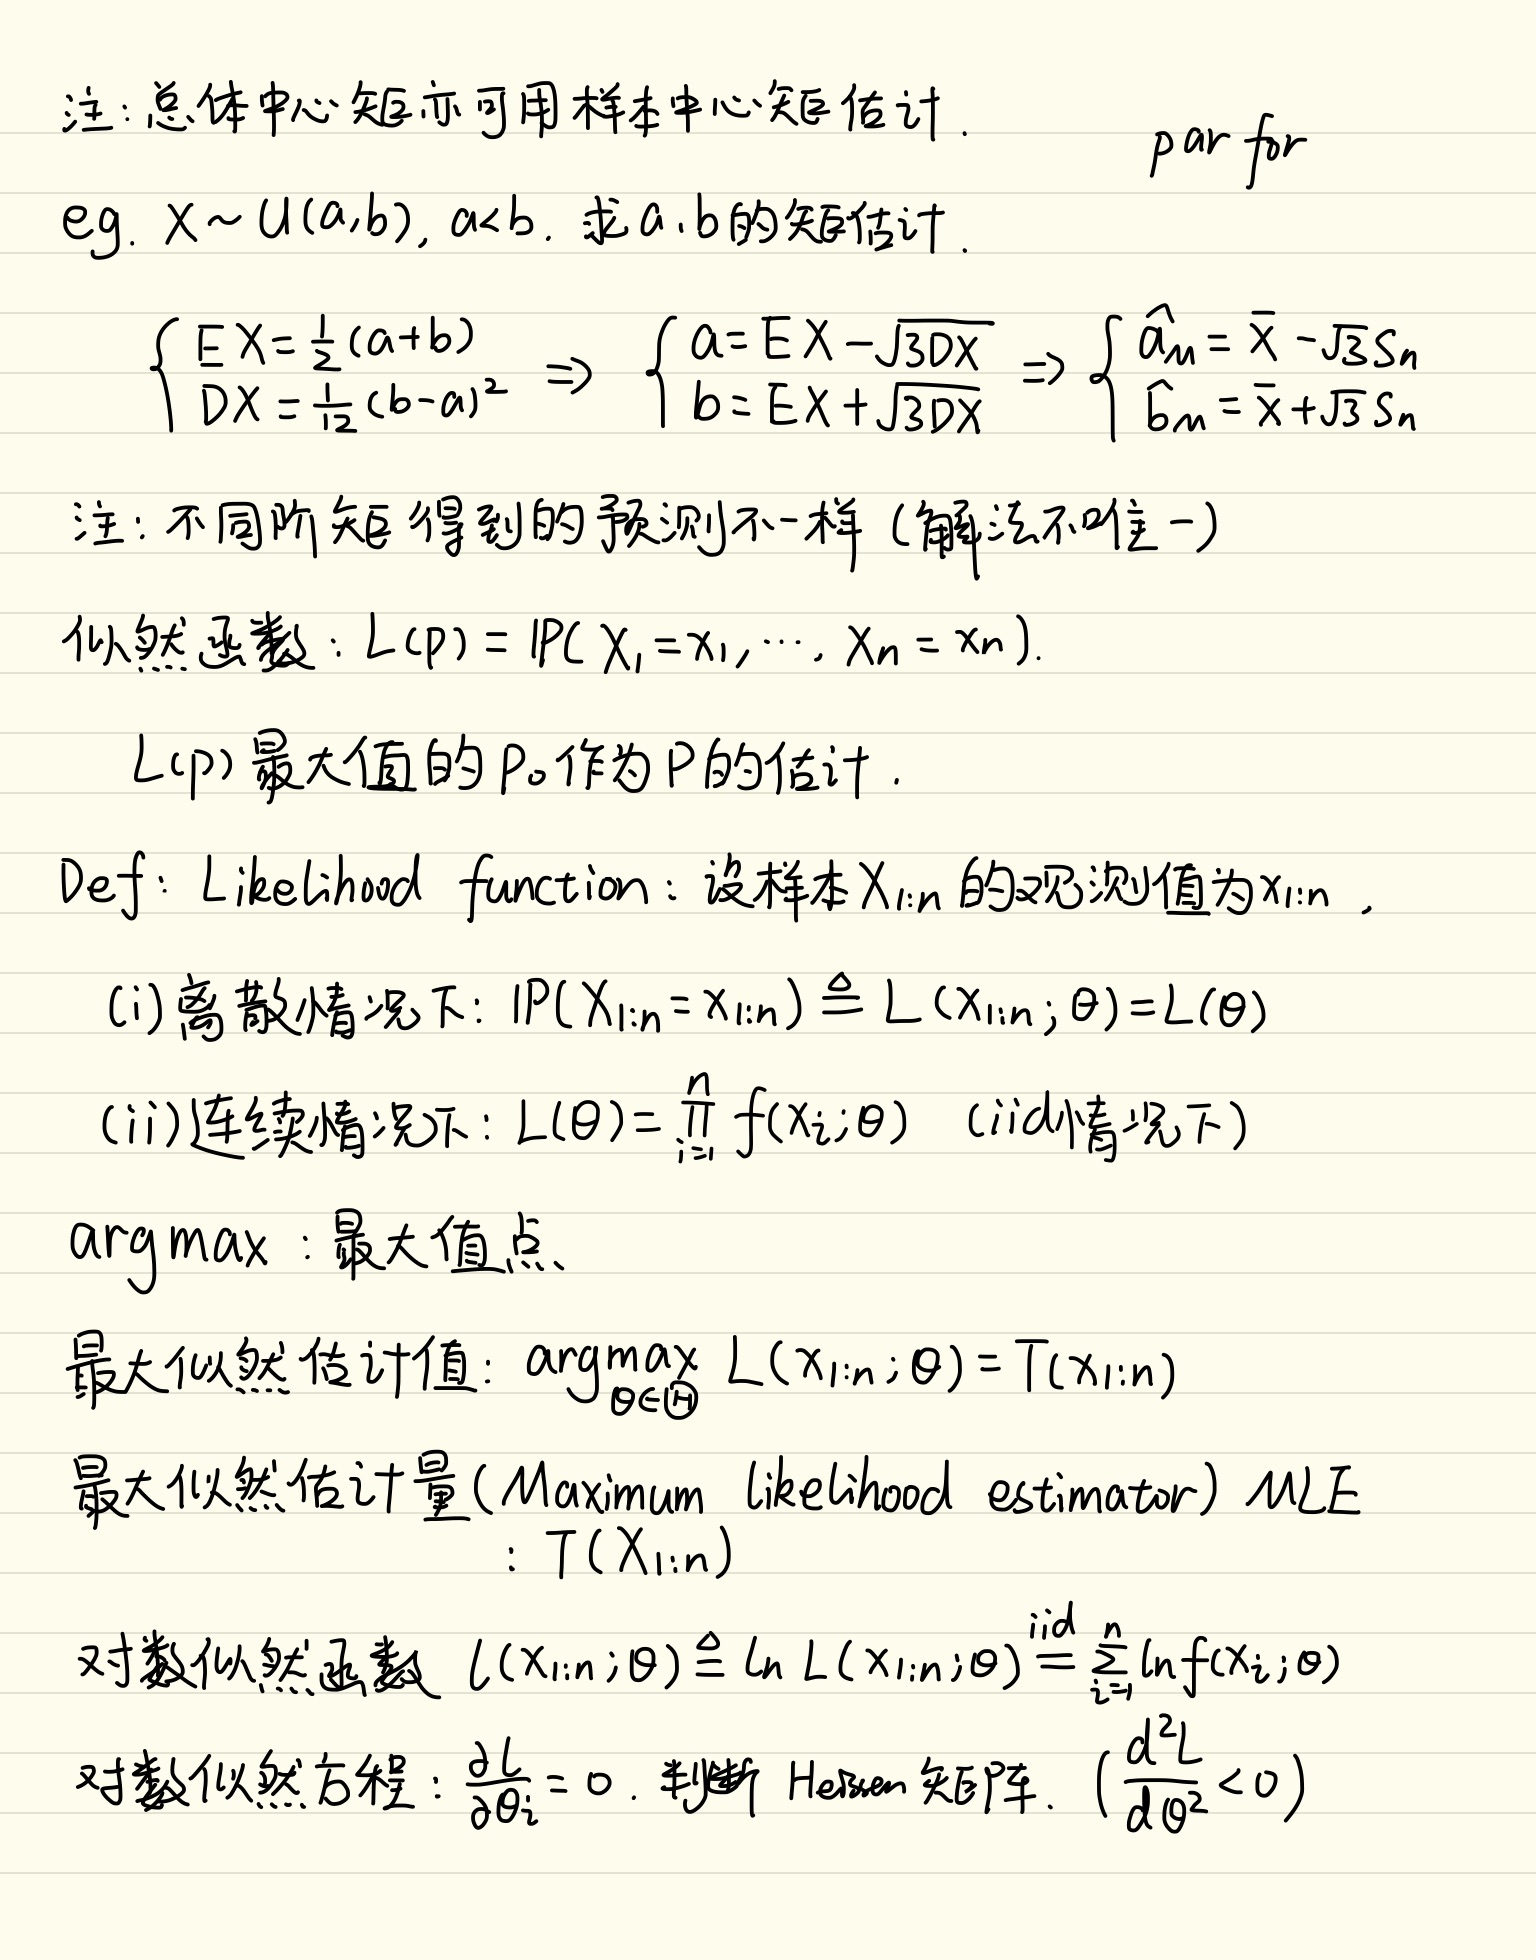 注：总体中心矩亦可用样本中心矩估计.
par for
eg. X ~ U(a,b), a<b. 求a,b的矩估计.
{ EX = 1/2 (a+b) ⇒ { a = EX - √3DX ⇒ { â_m = x̄ - √3 S_n
DX = 1/12 (b-a)² b = EX + √3DX b̂_m = x̄ + √3 S_n
注：不同阶矩得到的预测不一样（解法不唯一）
似然函数：L(p) = ℙ(X₁=x₁, ⋯, Xₙ=xₙ).
L(p)最大值的p₀作为P的估计.
Def: Likelihood function: 设样本X_{1:n}的观测值为x_{1:n},
(i) 离散情况下：ℙ(X_{1:n}=x_{1:n}) ≜ L(x_{1:n};θ)=L(θ)
(ii) 连续情况下：L(θ)=∏_{i=1}^{n} f(x_i;θ) (iid情况下)
argmax：最大值点
最大似然估计值：argmax_{θ∈Θ} L(x_{1:n};θ)=T(x_{1:n})
最大似然估计量(Maximum likelihood estimator) MLE
: T(X_{1:n})
对数似然函数 l(x_{1:n};θ) ≜ ln L(x_{1:n};θ) =^{iid} ∑_{i=1}^{n} ln f(x_i;θ)
对数似然方程：∂L/∂θ_i = 0. 判断 Hessen 矩阵. (d²L/dθ² < 0)